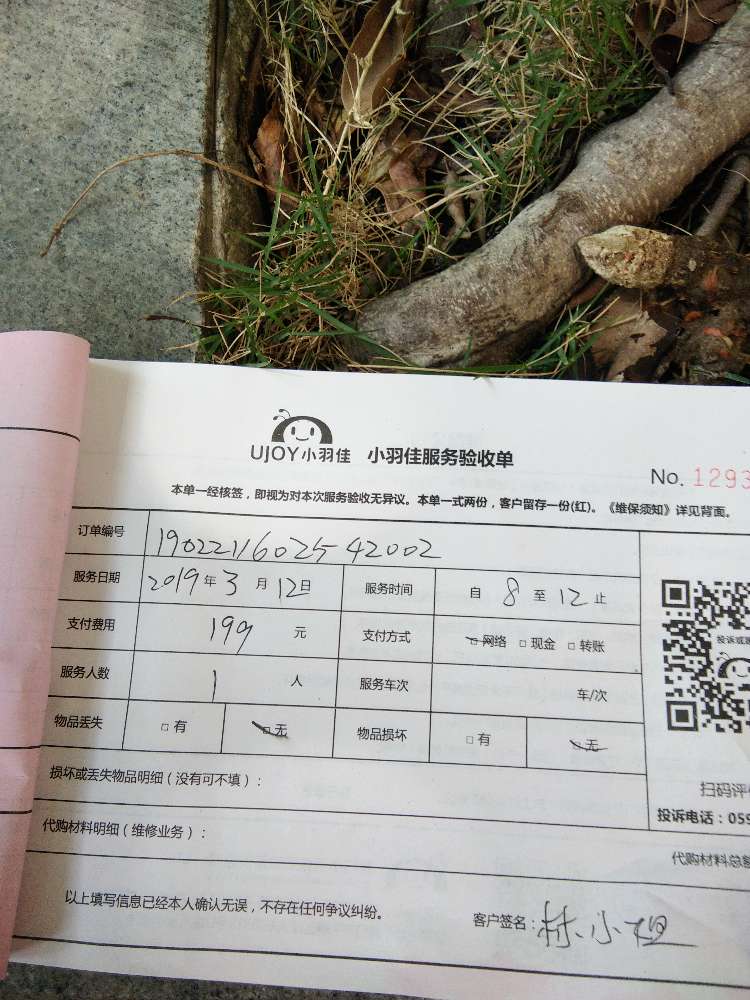 UJOY小羽佳 小羽佳服务验收单
No. 1293
本单一经核签，即视为对本次服务验收无异议。本单一式两份，客户留存一份(红)。《维保须知》详见背面。
订单编号 1902211602542002
服务日期 2019年3月12日 服务时间 自8至12止
支付费用 199元 支付方式 □网络 □现金 □转账
服务人数 1人 服务车次 车/次
物品丢失 □有 □无 物品损坏 □有 □无
投诉或
损坏或丢失物品明细（没有可不填）：
扫码评
投诉电话：059
代购材料明细（维修业务）：
代购材料总
以上填写信息已经本人确认无误，不存在任何争议纠纷。
客户签名：林小姐